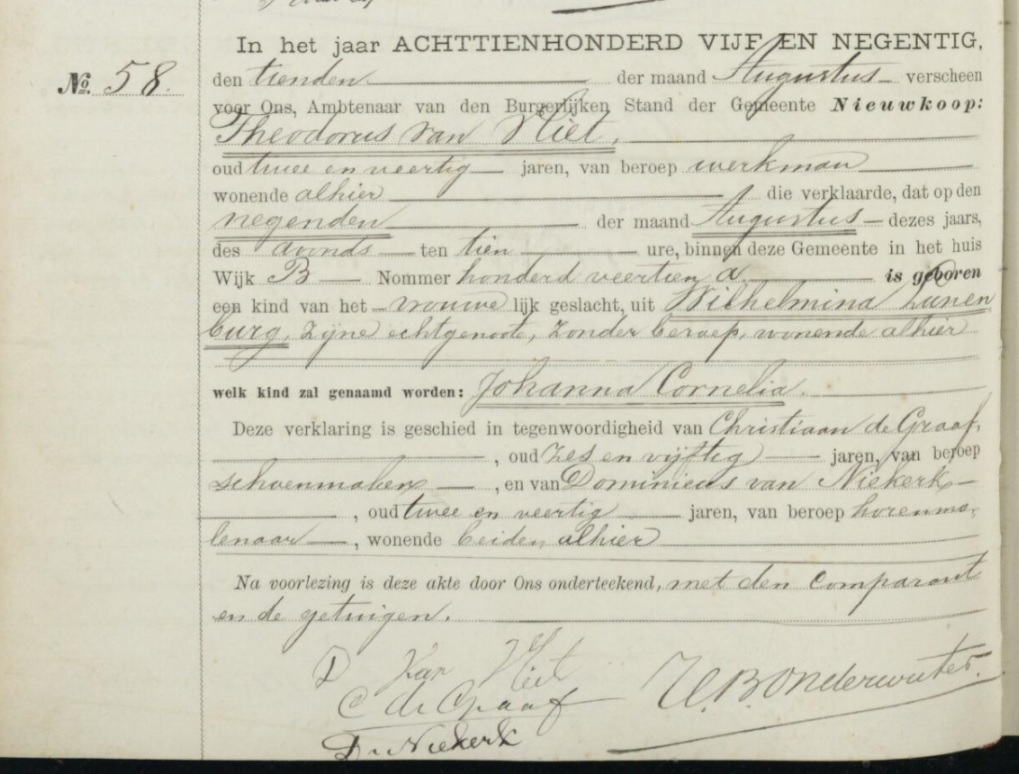 In het jaar ACHTTIENHONDERD VIJF EN NEGENTIG,
No. 58. den tienden der maand Augustus verscheen
voor Ons, Ambtenaar van den Burgerlijken Stand der Gemeente Nieuwkoop:
Theodorus van Vliet,
oud twee en veertig jaren, van beroep werkman
wonende alhier die verklaarde, dat op den
negenden der maand Augustus dezes jaars,
des avonds ten tien ure, binnen deze Gemeente in het huis
Wijk B Nommer honderd veertien a is geboren
een kind van het vrouwelijk geslacht, uit Wilhelmina Lunen
burg, zijne echtgenoote, zonder beroep, wonende alhier
welk kind zal genaamd worden: Johanna Cornelia.
Deze verklaring is geschied in tegenwoordigheid van Christiaan de Graaf,
, oud zes en vijftig jaren, van beroep
schoenmaker , en van Dominicus van Niekerk
, oud twee en veertig jaren, van beroep korenmo-
lenaar , wonende beiden alhier
Na voorlezing is deze akte door Ons onderteekend, met den comparant
en de getuigen.
van Vliet
C de Graaf
Niekerk
Onderwater